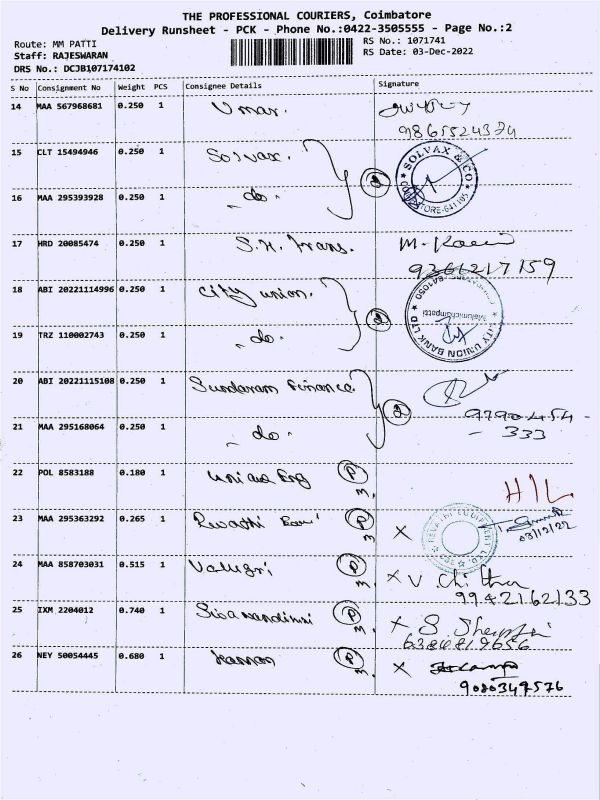 THE PROFESSIONAL COURIERS, Coimbatore
Delivery Runsheet - PCK - Phone No.:0422-3505555 - Page No.:2
Route: MM PATTI
RS No.: 1071741
Staff: RAJESWARAN
RS Date: 03-Dec-2022
DRS No.: DCJB107174102
S No Consignment No Weight PCS Consignee Details Signature
14 MAA 567968681 0.250 1 Umar.
9865524374
15 CLT 15494946 0.250 1 Solvax.
2
SOLVAX & CO
16 MAA 295393928 0.250 1 - do -
17 HRD 20085474 0.250 1 S.H. Trans. M.
9361217159
18 ABI 20221114996 0.250 1 City union.
2
CITY UNION BANK LTD
Malumichampatti
19 TRZ 110002743 0.250 1 - do -
20 ABI 20221115108 0.250 1 Sundaram Finance
2
9790454-
- 333
21 MAA 295168064 0.250 1 - do -
22 POL 8583188 0.180 1 Eng P
HIL
23 MAA 295363292 0.265 1 Revathi P X
03/12/22
24 MAA 858703031 0.515 1 P X V. Chithra
9942162133
25 IXM 2204012 0.740 1 P X S.
26 NEY 50054445 0.680 1 Kannan P X
9080349576